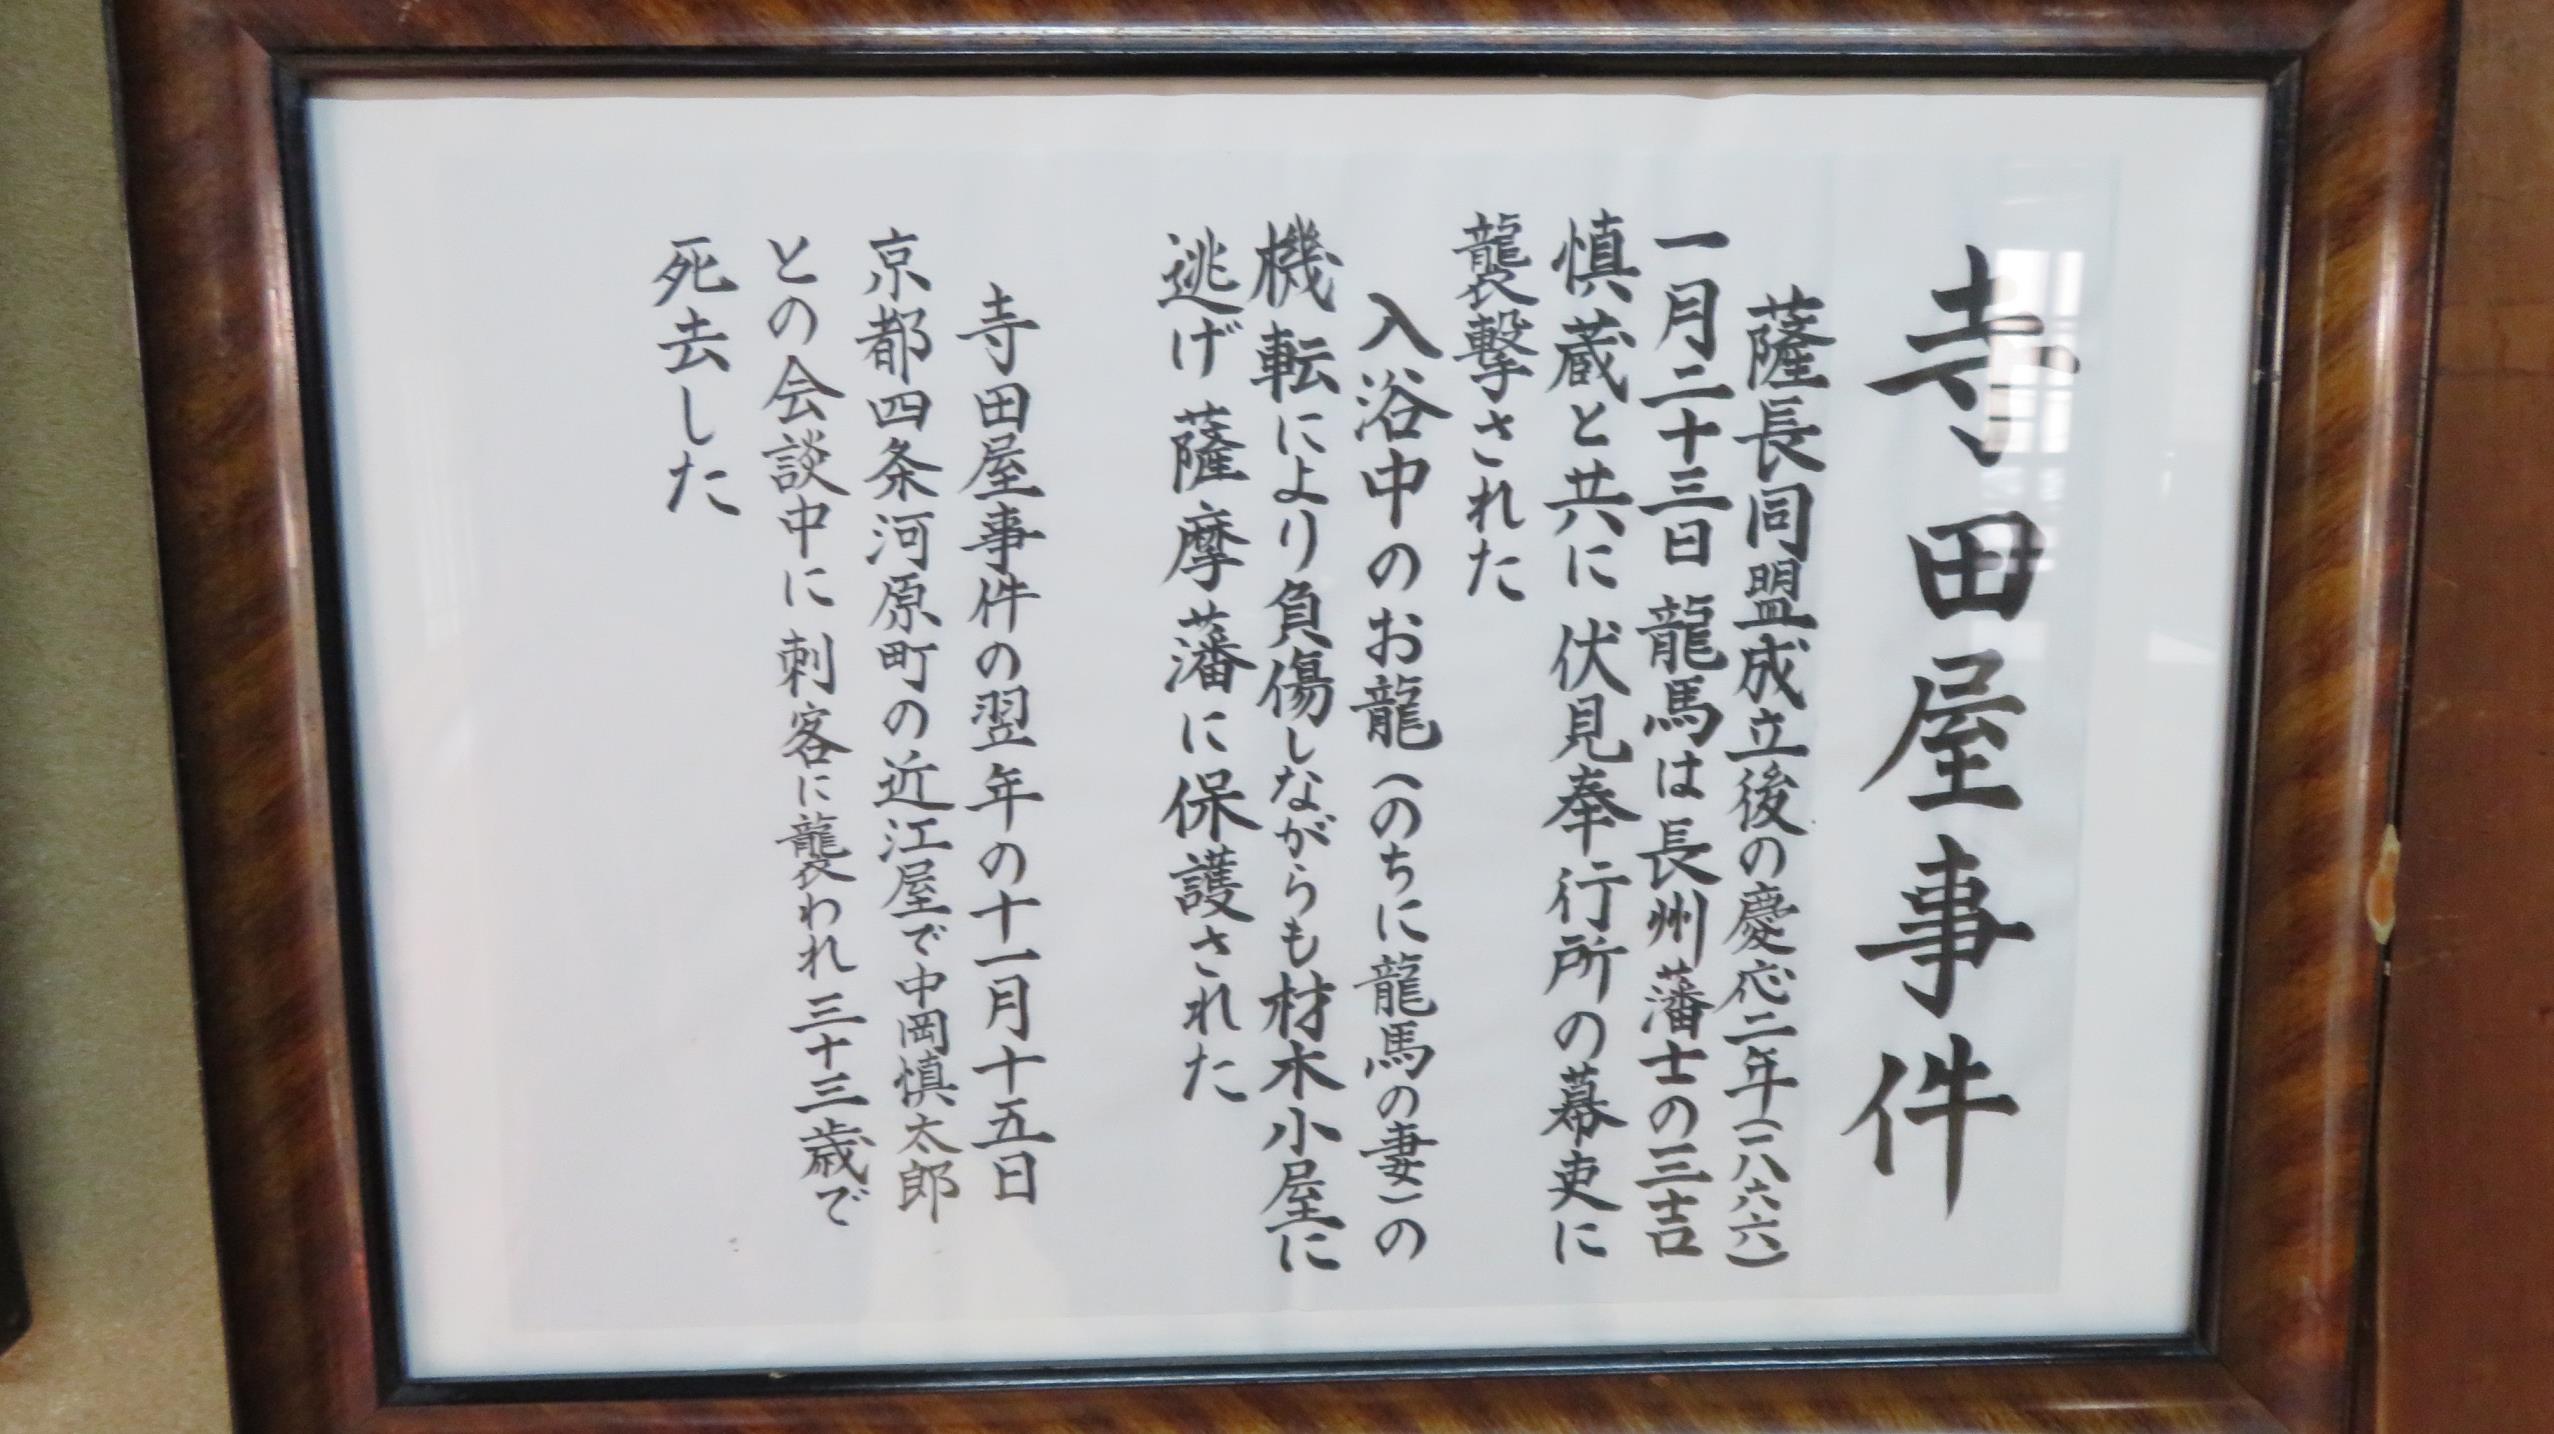 寺田屋事件
薩長同盟成立後の慶応二年(一八六六)
一月二十三日龍馬は長州藩士の三吉
慎蔵と共に伏見奉行所の幕吏に
襲撃された
入浴中のお龍(のちに龍馬の妻)の
機転により負傷しながらも材木小屋に
逃げ薩摩藩に保護された
寺田屋事件の翌年の十一月十五日
京都四条河原町の近江屋で中岡慎太郎
との会談中に刺客に襲われ三十三歳で
死去した